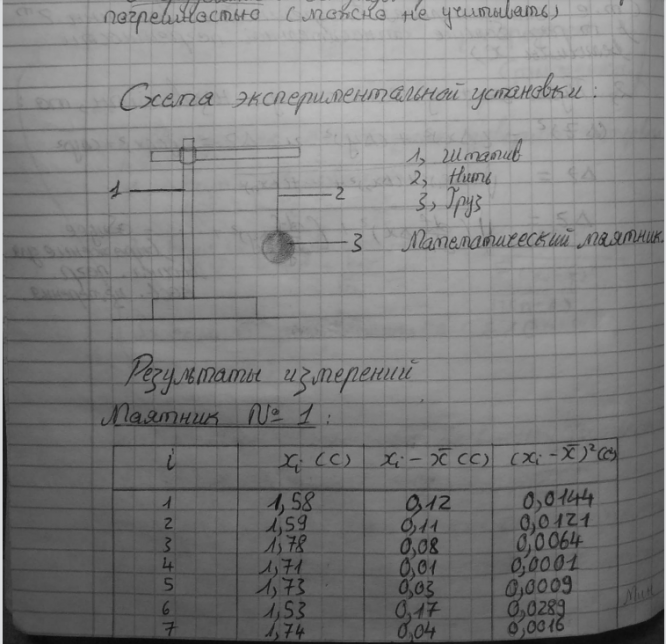 погрешностью (можно не учитывать)
Схема экспериментальной установки:
1, Штатив
1
2
2, Нить
3, Груз
3
Математический маятник
Результаты измерений
Маятник № 1:
i xᵢ (с) xᵢ - x̄ (с) (xᵢ - x̄)² (с)
1 1,58 0,12 0,0144
2 1,59 0,11 0,0121
3 1,78 0,08 0,0064
4 1,71 0,01 0,0001
5 1,73 0,03 0,0009
6 1,53 0,17 0,0289
7 1,74 0,04 0,0016